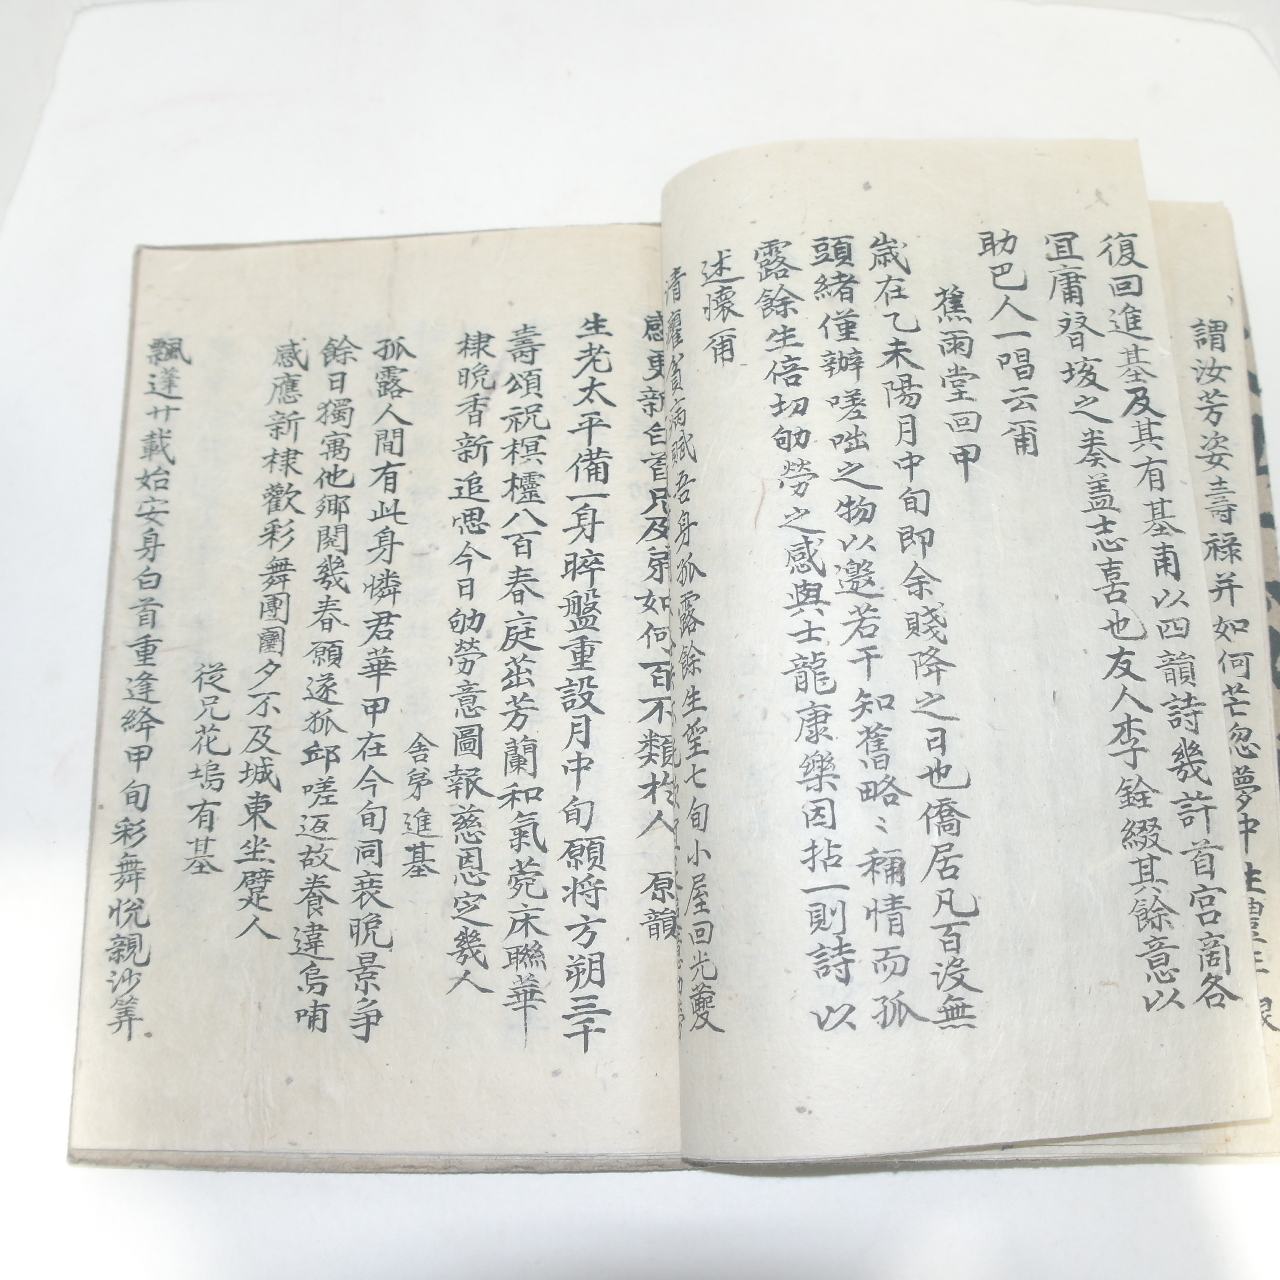 謂汝芳姿壽祿并如何芒忽夢中
復回進基及其有基甫以四韻詩幾許首宮商各
冝庸替堎之奏盖志喜也友人李銓綴其餘意以
助巴人一唱云爾
蕉雨堂回甲
歲在乙未陽月中旬即余賤降之日也僑居凡百沒無
頭緒僅辦嗟咄之物以邀若干知舊略〻稱情而孤
露餘生倍切劬勞之感與士龍康樂因拈一則詩以
述懷爾
清癯貧病賦吾身孤露餘生望七旬小屋回光
感更新白首只及弟如何百不類於人 原韻
生老太平備一身晬盤重設月中旬願將方朔三千
壽頌祝楳櫺八百春庭茁芳蘭和氣菀床聯華
棣晩香新追思今日劬勞意圖報慈恩定幾人
舍弟進基
孤露人間有此身憐君華甲在今旬同衰晩景爭
餘日獨寓他鄉閱幾春願遂狐邱嗟返故養違烏哺
感應新棣歡彩舞團圞夕不及城東坐躄人
從兄花塢有基
飄蓬廿載始安身白首重逢絳甲旬彩舞悅親沙筭